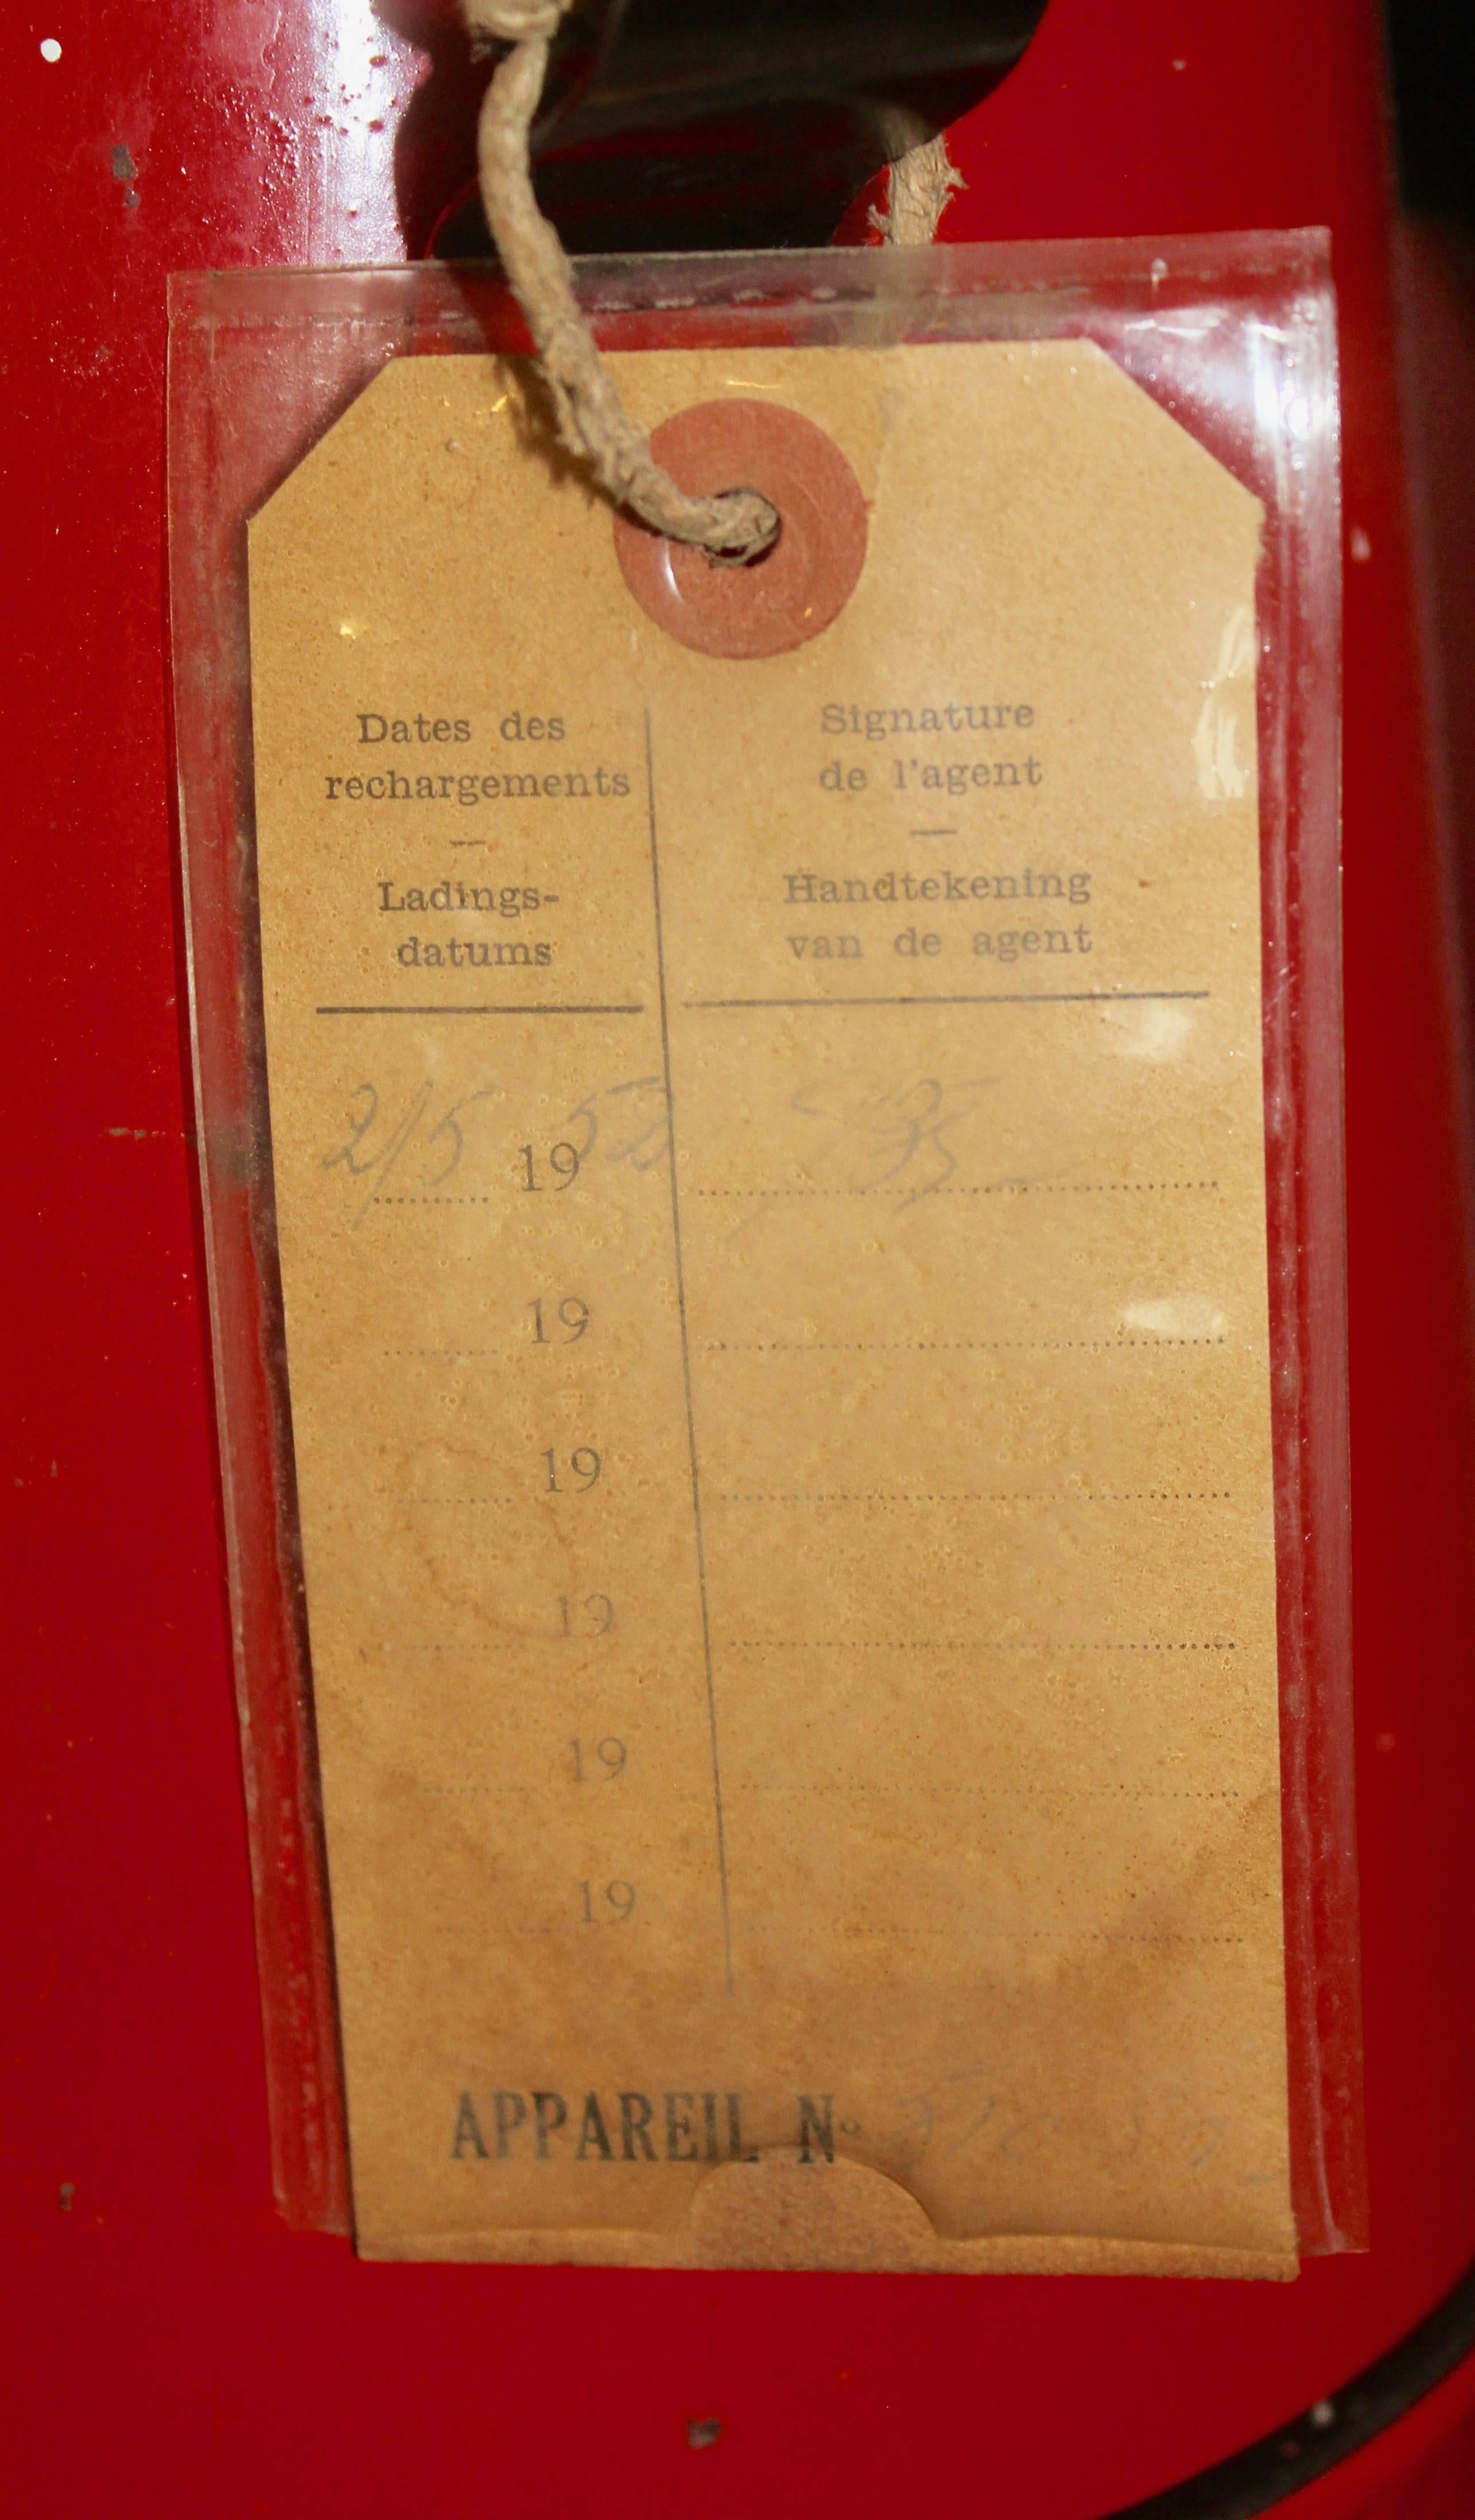 Dates des
rechargements
—
Ladings-
datums
Signature
de l'agent
—
Handtekening
van de agent
2/5 1952
19
19
19
19
19
APPAREIL N°